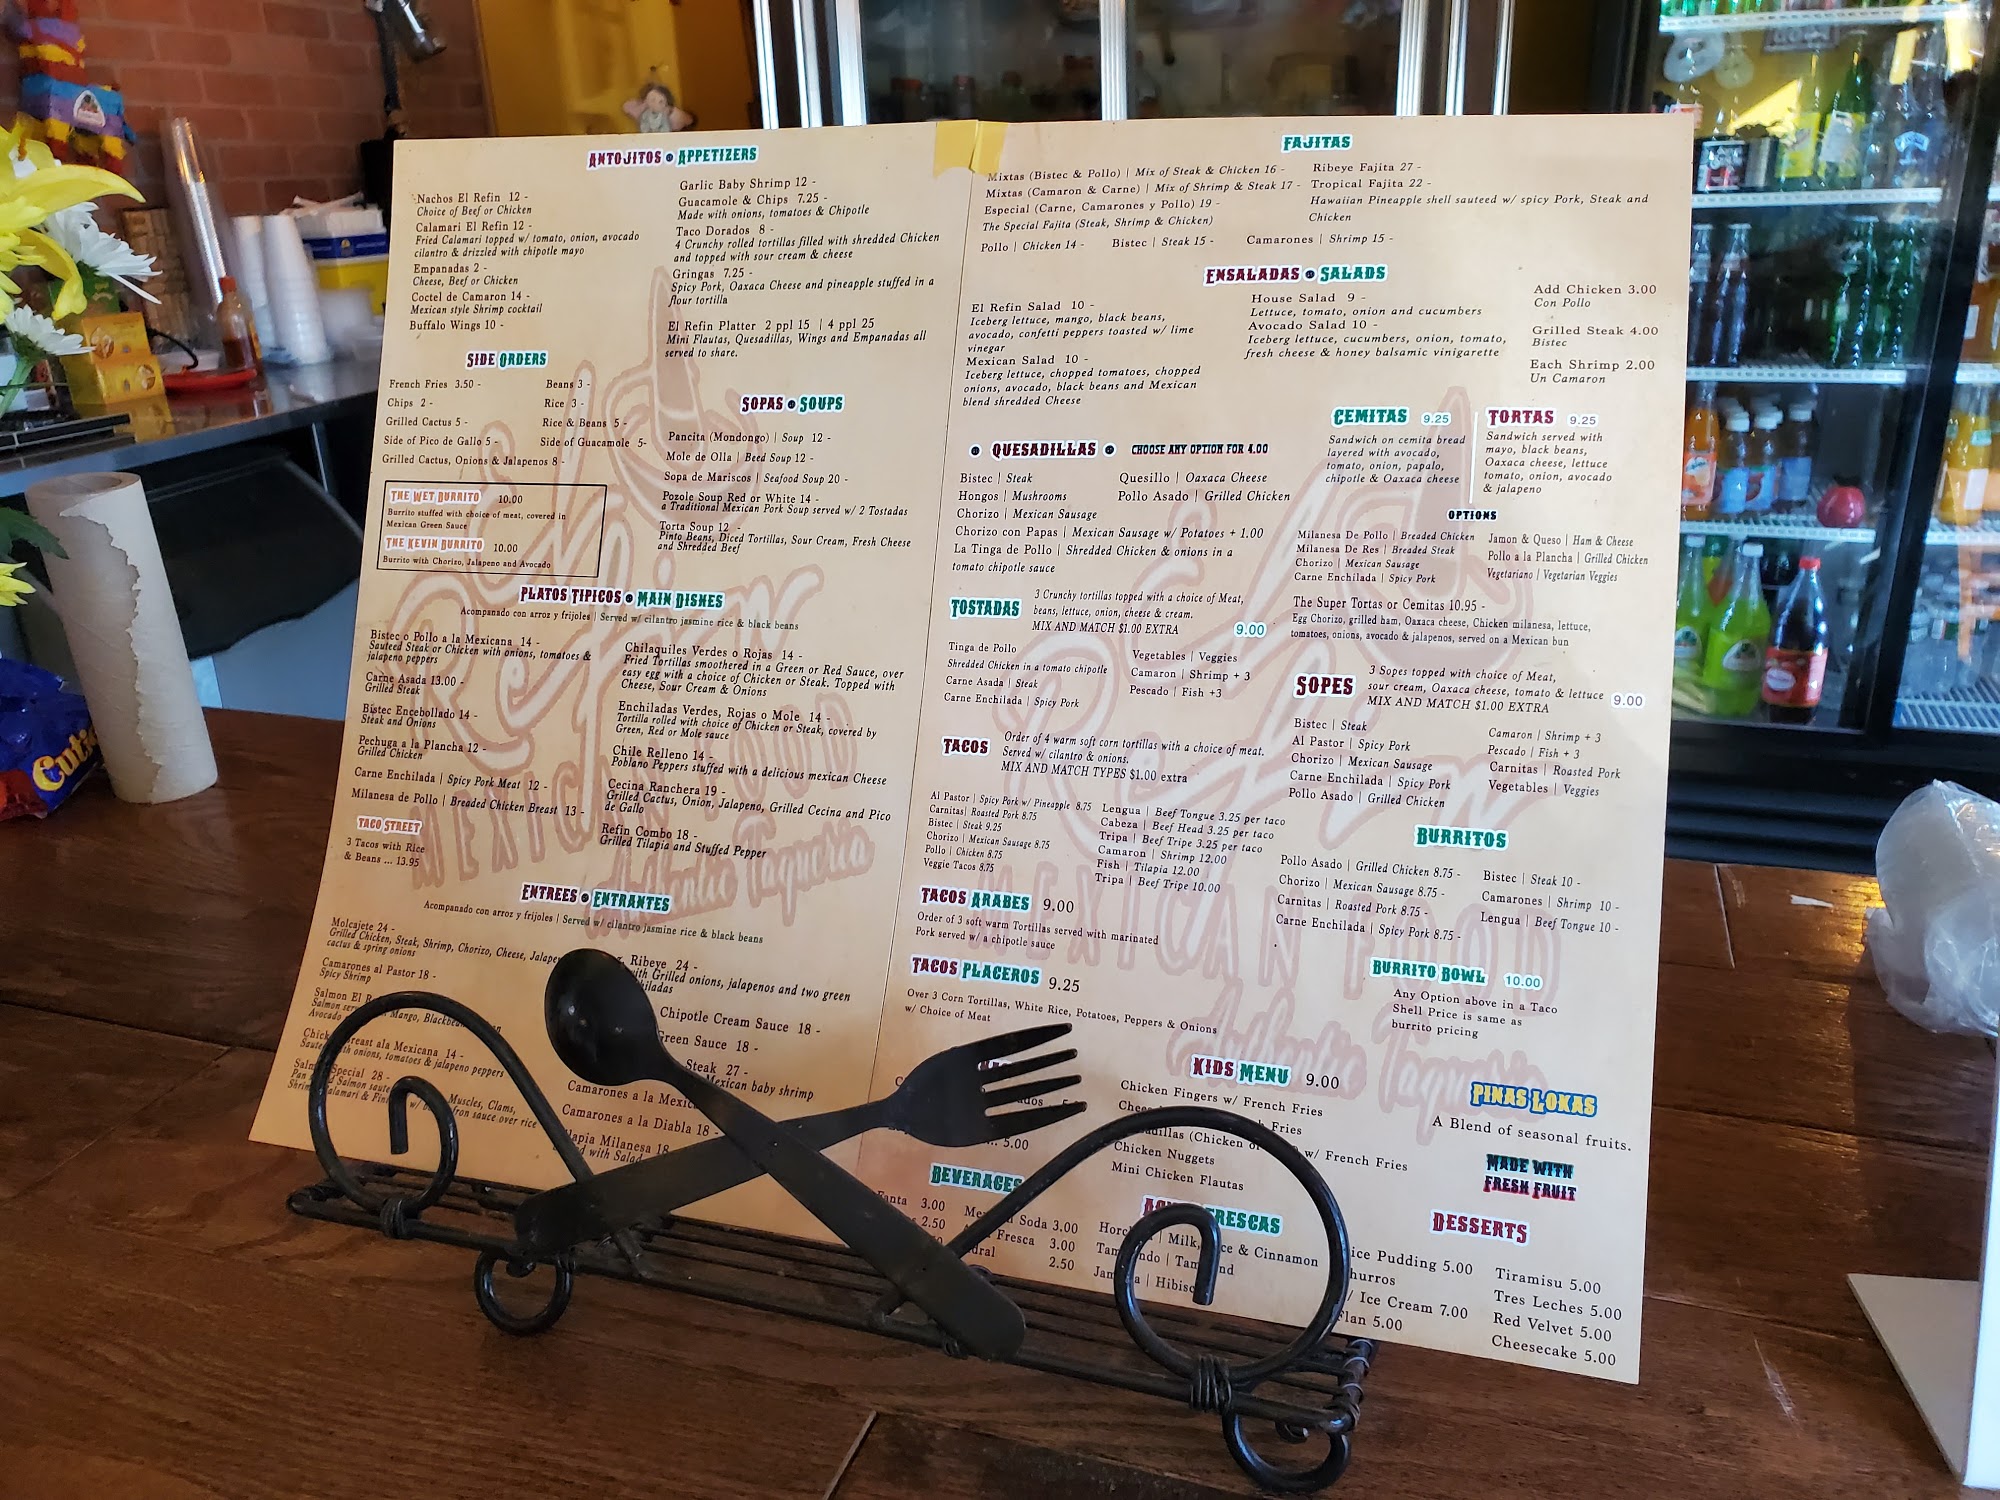 ANTOJITOS • APPETIZERS
Nachos El Refin 12 -
Choice of Beef or Chicken
Calamari El Refin 12 -
Fried Calamari topped w/ tomato, onion, avocado
cilantro & drizzled with chipotle mayo
Empanadas 2 -
Cheese, Beef or Chicken
Coctel de Camaron 14 -
Mexican style Shrimp cocktail
Buffalo Wings 10 -
Garlic Baby Shrimp 12 -
Guacamole & Chips 7.25 -
Made with onions, tomatoes & Chipotle
Taco Dorados 8 -
4 Crunchy rolled tortillas filled with shredded Chicken
and topped with sour cream & cheese
Gringas 7.25 -
Spicy Pork, Oaxaca Cheese and pineapple stuffed in a
flour tortilla
El Refin Platter 2 ppl 15 | 4 ppl 25
Mini Flautas, Quesadillas, Wings and Empanadas all
served to share.
SIDE ORDERS
French Fries 3.50 -
Chips 2 -
Grilled Cactus 5 -
Side of Pico de Gallo 5 -
Grilled Cactus, Onions & Jalapenos 8 -
Beans 3 -
Rice 3 -
Rice & Beans 5 -
Side of Guacamole 5-
THE WET BURRITO 10.00
Burrito stuffed with choice of meat, covered in
Mexican Green Sauce
THE KEVIN BURRITO 10.00
Burrito with Chorizo, Jalapeno and Avocado
SOPAS • SOUPS
Pancita (Mondongo) | Soup 12 -
Mole de Olla | Beed Soup 12 -
Sopa de Mariscos | Seafood Soup 20 -
Pozole Soup Red or White 14 -
a Traditional Mexican Pork Soup served w/ 2 Tostadas
Torta Soup 12 -
Pinto Beans, Diced Tortillas, Sour Cream, Fresh Cheese
and Shredded Beef
PLATOS TIPICOS • MAIN DISHES
Acompanado con arroz y frijoles | Served w/ cilantro jasmine rice & black beans
Bistec o Pollo a la Mexicana 14 -
Sauteed Steak or Chicken with onions, tomatoes &
jalapeno peppers
Carne Asada 13.00 -
Grilled Steak
Bistec Encebollado 14 -
Steak and Onions
Pechuga a la Plancha 12 -
Grilled Chicken
Carne Enchilada | Spicy Pork Meat 12 -
Milanesa de Pollo | Breaded Chicken Breast 13 -
TACO STREET
3 Tacos with Rice
& Beans ... 13.95
Chilaquiles Verdes o Rojas 14 -
Fried Tortillas smoothered in a Green or Red Sauce, over
easy egg with a choice of Chicken or Steak. Topped with
Cheese, Sour Cream & Onions
Enchiladas Verdes, Rojas o Mole 14 -
Tortilla rolled with choice of Chicken or Steak, covered by
Green, Red or Mole sauce
Chile Relleno 14 -
Poblano Peppers stuffed with a delicious mexican Cheese
Cecina Ranchera 19 -
Grilled Cactus, Onion, Jalapeno, Grilled Cecina and Pico
de Gallo
Refin Combo 18 -
Grilled Tilapia and Stuffed Pepper
ENTREES • ENTRANTES
Acompanado con arroz y frijoles | Served w/ cilantro jasmine rice & black beans
Molcajete 24 -
Grilled Chicken, Steak, Shrimp, Chorizo, Cheese,
cactus & spring onions
Camarones al Pastor 18 -
Spicy Shrimp
Salmon El
Salmon Mango,
Avocado
Breast ala Mexicana 14 -
onions, tomatoes & jalapeno peppers
Special 28 -
Salmon Muscles, Clams,
sauce over rice
Ribeye 24 -
with Grilled onions, jalapenos and two green
Chipotle Cream Sauce 18 -
Green Sauce 18 -
Steak 27 -
Mexican baby shrimp
Camarones a la
Camarones a la Diabla 18 -
Milanesa 18
with Salad
FAJITAS
Mixtas (Bistec & Pollo) | Mix of Steak & Chicken 16 -
Mixtas (Camaron & Carne) | Mix of Shrimp & Steak 17 -
Especial (Carne, Camarones y Pollo) 19 -
The Special Fajita (Steak, Shrimp & Chicken)
Pollo | Chicken 14 - Bistec | Steak 15 - Camarones | Shrimp 15 -
Ribeye Fajita 27 -
Tropical Fajita 22 -
Hawaiian Pineapple shell sauteed w/ spicy Pork, Steak and
Chicken
ENSALADAS • SALADS
El Refin Salad 10 -
Iceberg lettuce, mango, black beans,
avocado, confetti peppers toasted w/ lime
vinegar
Mexican Salad 10 -
Iceberg lettuce, chopped tomatoes, chopped
onions, avocado, black beans and Mexican
blend shredded Cheese
House Salad 9 -
Lettuce, tomato, onion and cucumbers
Avocado Salad 10 -
Iceberg lettuce, cucumbers, onion, tomato,
fresh cheese & honey balsamic vinigarette
Add Chicken 3.00
Con Pollo
Grilled Steak 4.00
Bistec
Each Shrimp 2.00
Un Camaron
QUESADILLAS • CHOOSE ANY OPTION FOR 4.00
Bistec | Steak
Hongos | Mushrooms
Chorizo | Mexican Sausage
Chorizo con Papas | Mexican Sausage w/ Potatoes + 1.00
La Tinga de Pollo | Shredded Chicken & onions in a
tomato chipotle sauce
Quesillo | Oaxaca Cheese
Pollo Asado | Grilled Chicken
CEMITAS 9.25
Sandwich on cemita bread
layered with avocado,
tomato, onion, papalo,
chipotle & Oaxaca cheese
TORTAS 9.25
Sandwich served with
mayo, black beans,
Oaxaca cheese, lettuce
tomato, onion, avocado
& jalapeno
OPTIONS
Milanesa De Pollo | Breaded Chicken
Milanesa De Res | Breaded Steak
Chorizo | Mexican Sausage
Carne Enchilada | Spicy Pork
Jamon & Queso | Ham & Cheese
Pollo a la Plancha | Grilled Chicken
Vegetariano | Vegetarian Veggies
The Super Tortas or Cemitas 10.95 -
Egg Chorizo, grilled ham, Oaxaca cheese, Chicken milanesa, lettuce,
tomatoes, onions, avocado & jalapenos, served on a Mexican bun
TOSTADAS
3 Crunchy tortillas topped with a choice of Meat,
beans, lettuce, onion, cheese & cream.
MIX AND MATCH $1.00 EXTRA 9.00
Tinga de Pollo
Shredded Chicken in a tomato chipotle
Carne Asada | Steak
Carne Enchilada | Spicy Pork
Vegetables | Veggies
Camaron | Shrimp + 3
Pescado | Fish +3
SOPES
3 Sopes topped with choice of Meat,
sour cream, Oaxaca cheese, tomato & lettuce 9.00
MIX AND MATCH $1.00 EXTRA
Bistec | Steak
Al Pastor | Spicy Pork
Chorizo | Mexican Sausage
Carne Enchilada | Spicy Pork
Pollo Asado | Grilled Chicken
Camaron | Shrimp + 3
Pescado | Fish + 3
Carnitas | Roasted Pork
Vegetables | Veggies
TACOS
Order of 4 warm soft corn tortillas with a choice of meat.
Served w/ cilantro & onions.
MIX AND MATCH TYPES $1.00 extra
Al Pastor | Spicy Pork w/ Pineapple 8.75
Carnitas| Roasted Pork 8.75
Bistec | Steak 9.25
Chorizo | Mexican Sausage 8.75
Pollo | Chicken 8.75
Veggie Tacos 8.75
Lengua | Beef Tongue 3.25 per taco
Cabeza | Beef Head 3.25 per taco
Tripa | Beef Tripe 3.25 per taco
Camaron | Shrimp 12.00
Fish | Tilapia 12.00
Tripa | Beef Tripe 10.00
BURRITOS
Pollo Asado | Grilled Chicken 8.75 -
Chorizo | Mexican Sausage 8.75 -
Carnitas | Roasted Pork 8.75 -
Carne Enchilada | Spicy Pork 8.75 -
Bistec | Steak 10 -
Camarones | Shrimp 10 -
Lengua | Beef Tongue 10 -
TACOS ARABES 9.00
Order of 3 soft warm Tortillas served with marinated
Pork served w/ a chipotle sauce
TACOS PLACEROS 9.25
Over 3 Corn Tortillas, White Rice, Potatoes, Peppers & Onions
w/ Choice of Meat
BURRITO BOWL 10.00
Any Option above in a Taco
Shell Price is same as
burrito pricing
KIDS MENU 9.00
Chicken Fingers w/ French Fries
Fries
(Chicken w/ French Fries
Chicken Nuggets
Mini Chicken Flautas
5.00
PINAS LOKAS
A Blend of seasonal fruits.
MADE WITH
FRESH FRUIT
BEVERAGES
Fanta 3.00
2.50
Soda 3.00
Fresca 3.00
2.50
FRESCAS
| Milk, & Cinnamon
| Hibisc
DESSERTS
Pudding 5.00
Ice Cream 7.00
Flan 5.00
Tiramisu 5.00
Tres Leches 5.00
Red Velvet 5.00
Cheesecake 5.00
El Refin
MEXICAN FOOD
Authentic Taqueria